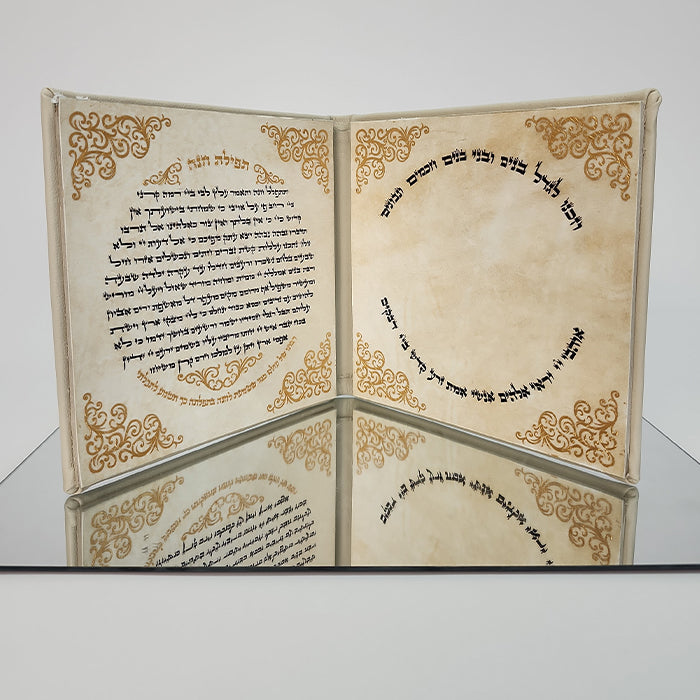 תפילת חנה
ותתפלל חנה ותאמר עלץ לבי ביי רמה קרני
ביי רחב פי על אויבי כי שמחתי בישועתך אין
קדוש כיי כי אין בלתך ואין צור כאלהינו אל תרבו
תדברו גבהה גבהה יצא עתק מפיכם כי אל דעות יי ולא
נתכנו עללות קשת גברים חתים ונכשלים אזרו חיל
שבעים בלחם נשכרו ורעבים חדלו עד עקרה ילדה שבעה
ורבת בנים אמללה יי ממית ומחיה מוריד שאול ויעל יי מוריש
ומעשיר משפיל אף מרומם מקים מעפר דל מאשפת ירים אביון
להושיב עם נדיבים וכסא כבוד ינחלם כי ליי מצקי ארץ וישת
עליהם תבל רגלי חסידיו ישמר ורשעים בחשך ידמו כי לא
בכח יגבר איש יי יחתו מריביו עליו בשמים ירעם יי ידין
אפסי ארץ ויתן עז למלכו וירם קרן משיחו
לחנה בתפילתה כך תשמע לתפילתי
וזכני לגדל בנים ובני בנים חכמים ונבונים
אוהבי יי ויראי אלהים אנשי אמת זרע קדש ביי דבקים